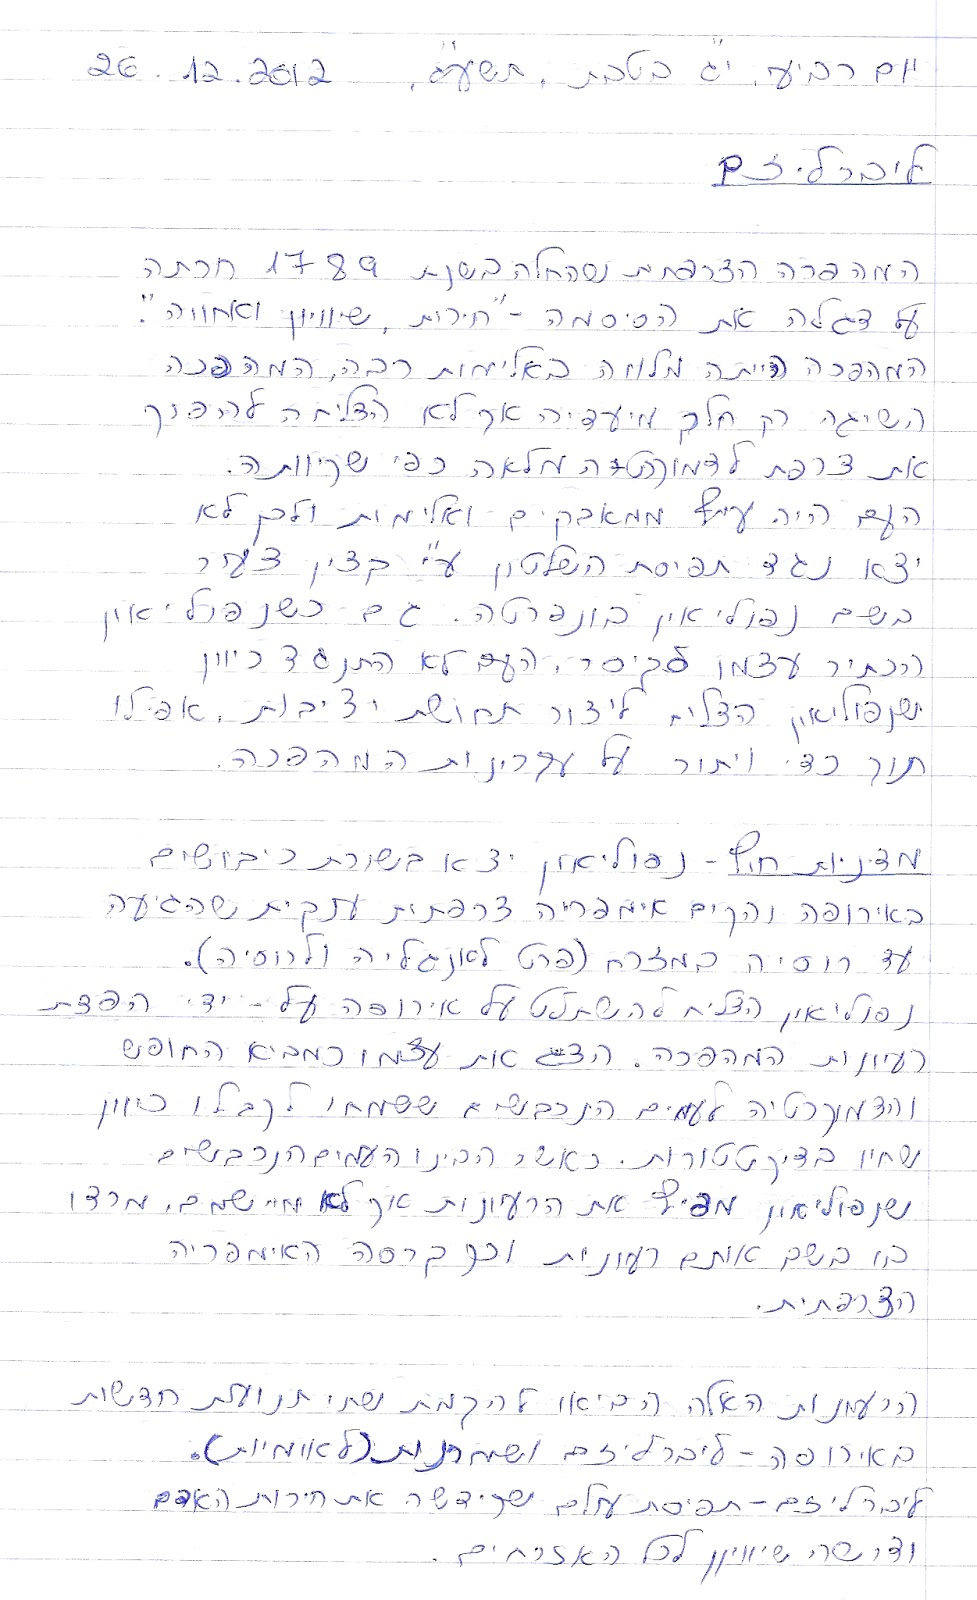 יום רביעי, י"ג בטבת, תשע"ג, 26.12.2012
ליברליזם
המהפכה הצרפתית שהחלה בשנת 1789 חרתה
על דגלה את הסיסמה - "חירות, שיוויון ואחווה".
המהפכה הייתה מלווה באלימות רבה, המהפכה
השיגה רק חלק מיעדיה אך לא הצליחה להפוך
את צרפת לדמוקרטיה מלאה כפי שקיוותה.
העם היה עייף ממאבקים ואלימות ולכן לא
יצא נגד תפיסת השלטון ע"י קצין צעיר
בשם נפוליאון בונפרטה. גם כשנפוליאון
הכתיר עצמו לקיסר, העם לא התנגד כיוון
שנפוליאון הצליח ליצור תחושת יציבות, אפילו
תוך כדי ויתור על עקרונות המהפכה.
מדיניות חוץ - נפוליאון יצא בשורת כיבושים
באירופה והקים אימפריה צרפתית ענקית שהגיעה
עד רוסיה במזרח (פרט לאנגליה ולרוסיה).
נפוליאון הצליח להשתלט על אירופה על-ידי הפצת
רעיונות המהפכה. הציג את עצמו כמביא החופש
והדמוקרטיה לעמים הנכבשים ששמחו לקבלו כיוון
שחיו בדיקטטורות. כאשר הבינו העמים הנכבשים
שנפוליאון מפיץ את הרעיונות אך לא מיישמם, מרדו
בו בשם אותם רעיונות וכך קרסה האימפריה
הצרפתית.
הרעיונות האלה הביאו להקמת שתי תנועות חדשות
באירופה - ליברליזם ושמרנות (לאומיות).
ליברליזם - תפיסת עולם שקידשה את חירות האדם
ודרשה שיוויון לכל האזרחים.